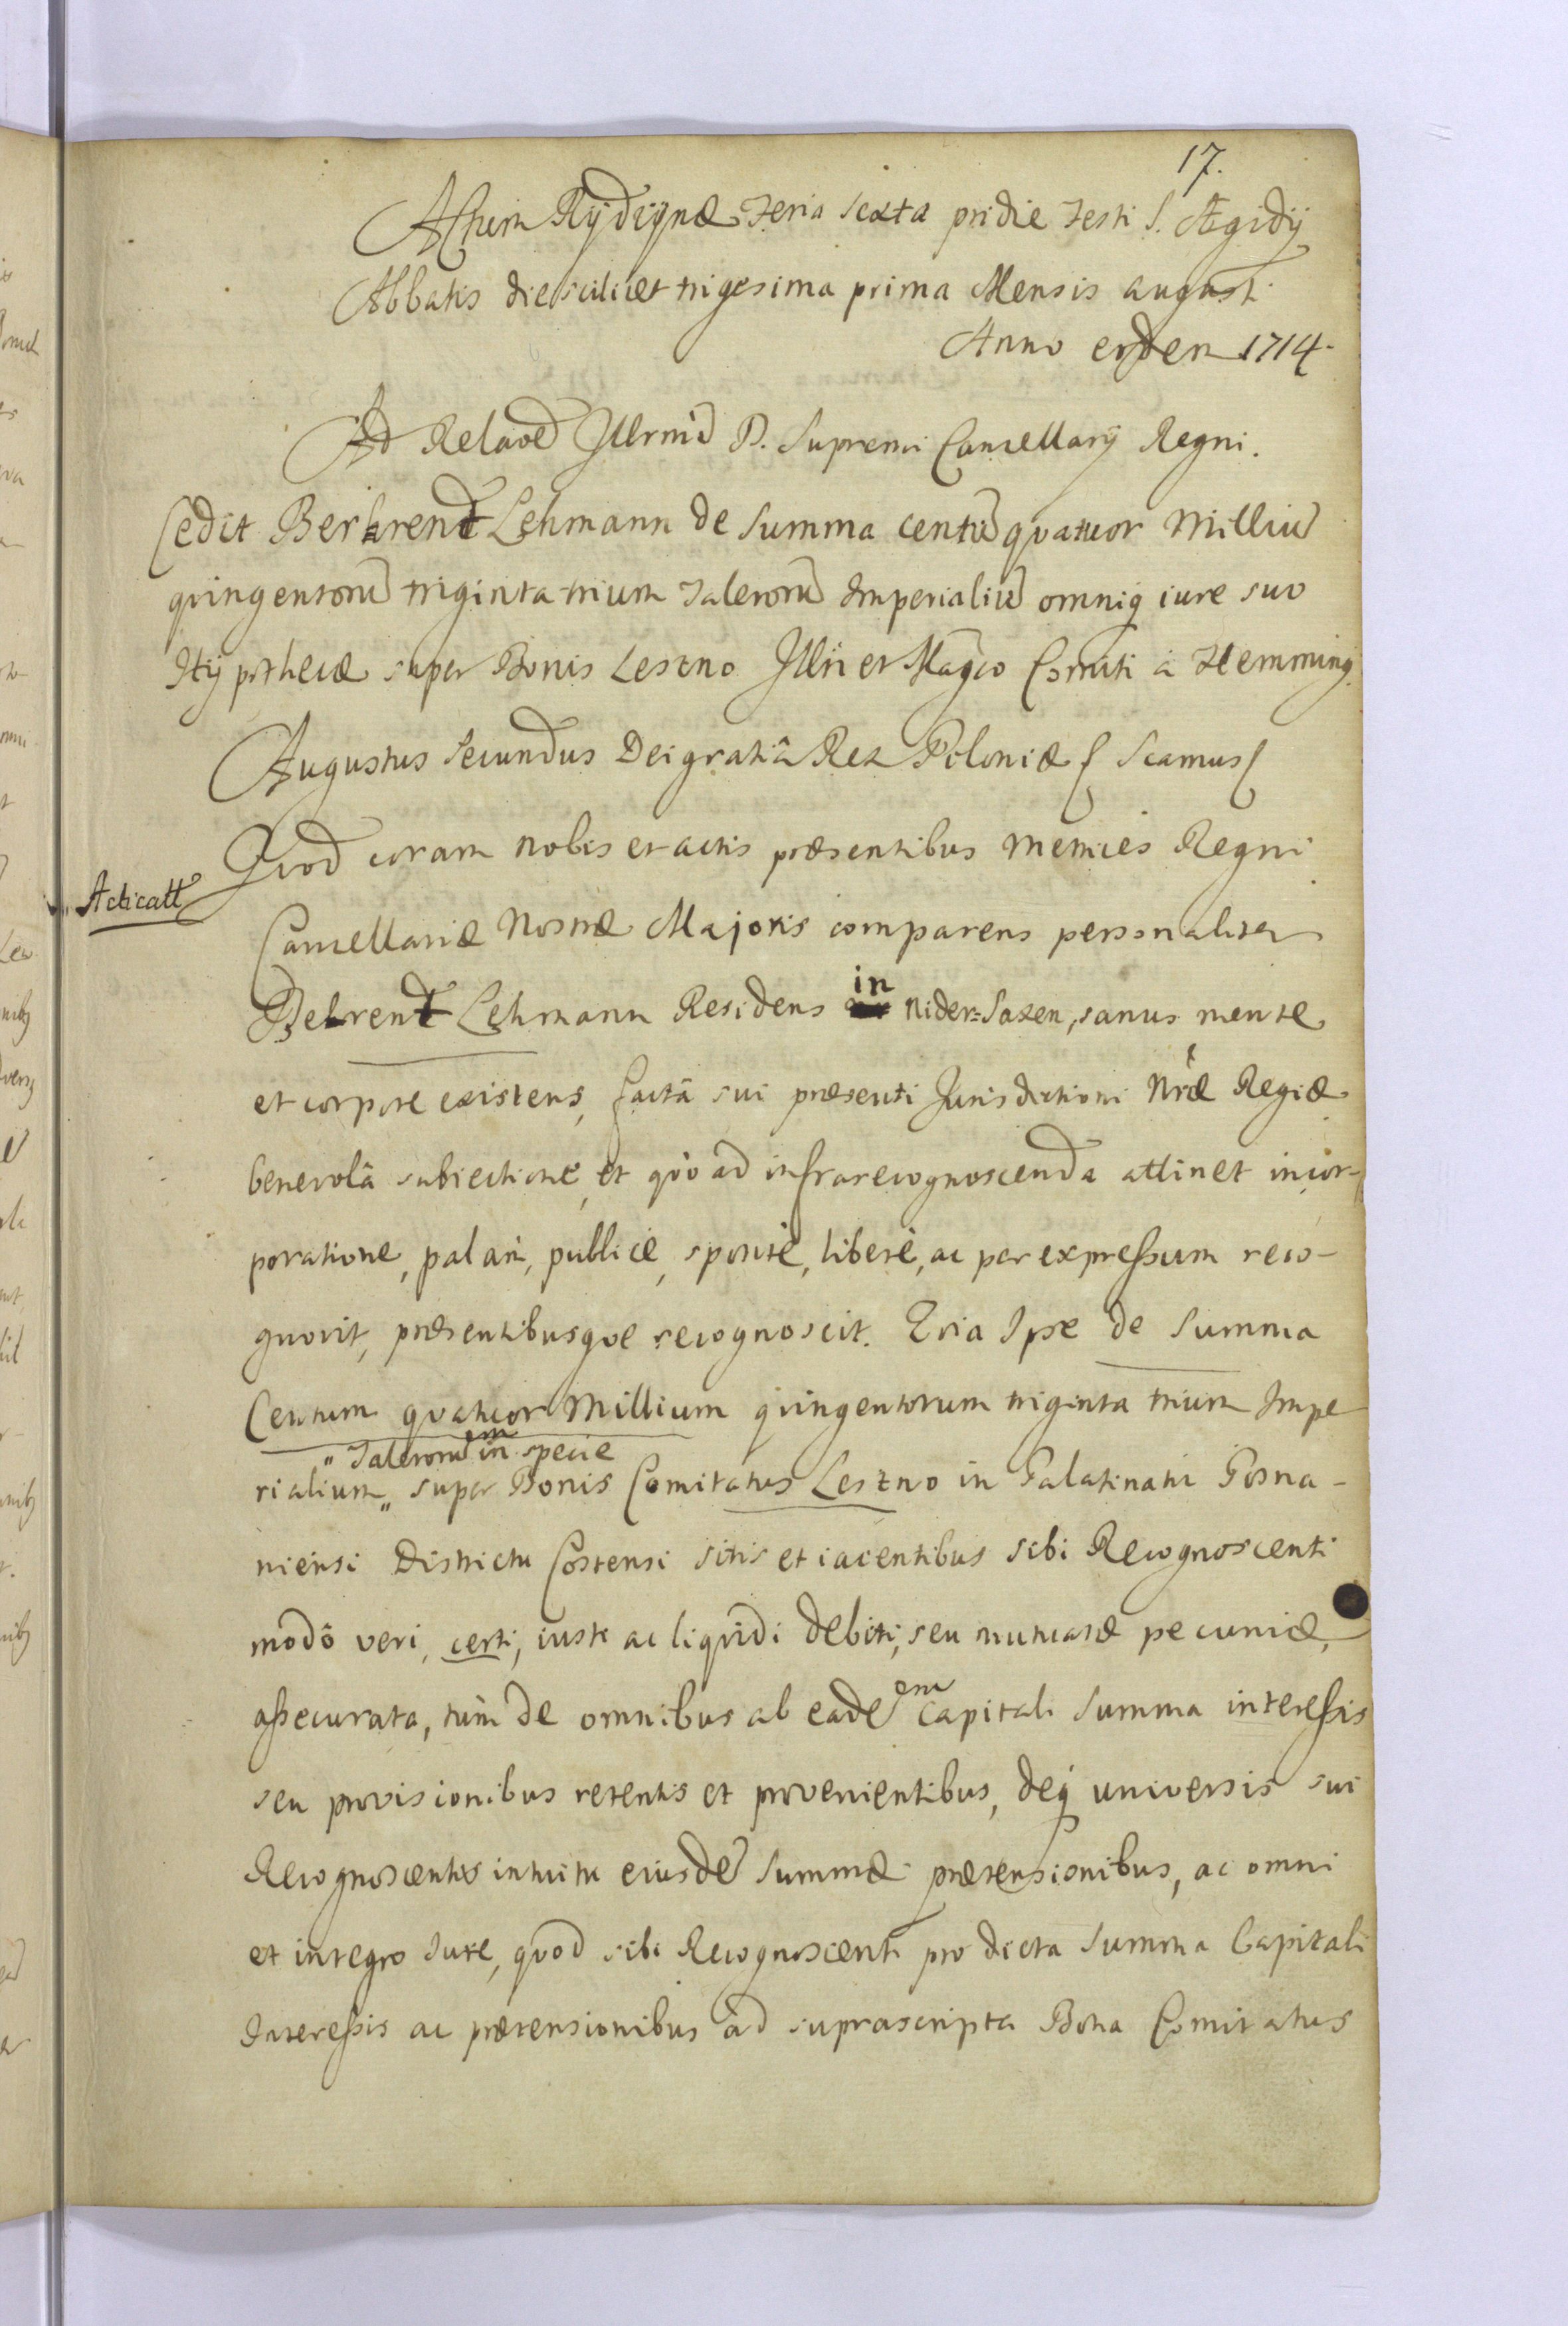 17.
Actum Rÿdzÿnæ Feria sexta pridie Festi S. Ægidÿ
Abbatis die scilicet trigesima prima Mensis augusti
Anno eodem 1714.
Ad Relaōe Illrmi D. Supremi Cancellarÿ Regni.
Cedit Berhrendt Lehmann de Summa centū quatuor Milliū
quingentorū triginta trium Talerorū Imperialiū omniq iure suo
Hÿpothecæ super Bonis Leszno Illri et Magco Comiti à Flemming.
Augustus Secundus Dei gratiâ Rex Poloniæ Scamus
Quod coram nobis et actis præsentibus Metrices Regni
Acticatt
Cancellariæ Nostræ Majoris comparens personaliter
Behrendt Lehmann Residens in Nider=Saxen, sanus mente
et corpore existens, factâ sui præsenti Jurisdictioni Nræ Regiæ
benevolâ subiectione, et quo ad infrarecognoscenda attinet incor-
poratione, palam, publicè, sponte, liberè, ac per expreßum reco-
gnovit, præsentibusque recognoscit. Qvia Ipse de Summa
Centum quatuor Millium quingentorum triginta trium Impe
" Talerorum in specie
rialium " super Bonis Comitatus Leszno in Palatinatu Posna-
niensi Districtu Costensi sitis et iacentibus sibi Recognoscenti
modô veri, certi, iusti ac liquidi debiti, seu mutuatæ pecuniæ,
aßecurata, tùm de omnibus ab eadem Capitali Summa intereßis
seu provisionibus retentis et provenientibus, deq universis sui
Recognoscentis intuitu eiusdē Summæ prætensionibus, ac omni
et integro Jure, quod sibi Recognoscenti pro dicta Summa Capitali
Intereßis ac prætensionibus ad suprascripta Bona Comitatus